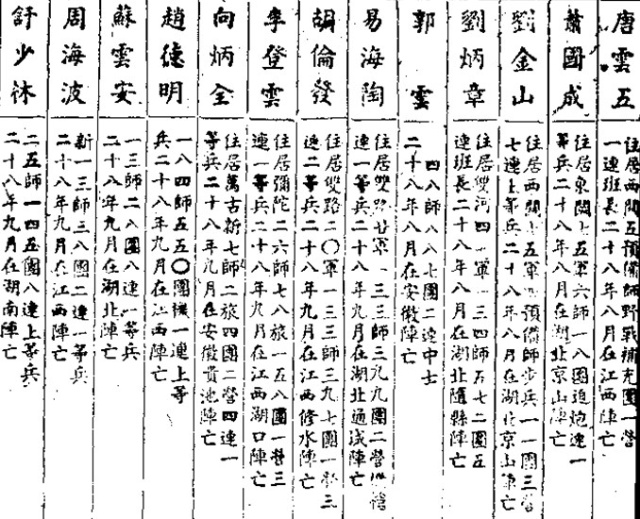 唐雲五
住居西關五預備師野戰補充團一營
一連班長二十八年八月在江西陣亡
蕭國成
住居東關十五軍六師一八團迫炮連一
等兵二十八年八月在湖北京山陣亡
劉金山
住居西關十五軍預備師步兵一一團三營
七連上等兵二十八年八月在湖北京山陣亡
劉炳章
住居雙河四一軍一三四師五七二團五
連班長二十八年八月在湖北隨縣陣亡
郭雲
四八師八八七團二連中士
二十八年八月在安徽陣亡
易海陶
住居雙路廿軍一三三師三九九團二營機槍
連一等兵二十八年九月在湖北通城陣亡
胡倫發
住居雙路二〇軍一三三師三九七團一營三
連二等兵二十八年九月在江西修水陣亡
李登雲
住居彌陀二六師七八旅一五八團一營三
連一等兵二十八年九月在江西湖口陣亡
向炳全
住居萬古新七師二旅四團二營四連一
等兵二十八年九月在安徽貴池陣亡
趙德明
一八四師五五〇團機一連上等
兵二十八年九月在江西陣亡
蘇雲安
一三師二八團八連一等兵
二十八年九月在湖北陣亡
周海波
新一三師三八團二連一等兵
二十八年九月在江西陣亡
舒少林
二五師一四五團八連上等兵
二十八年九月在湖南陣亡